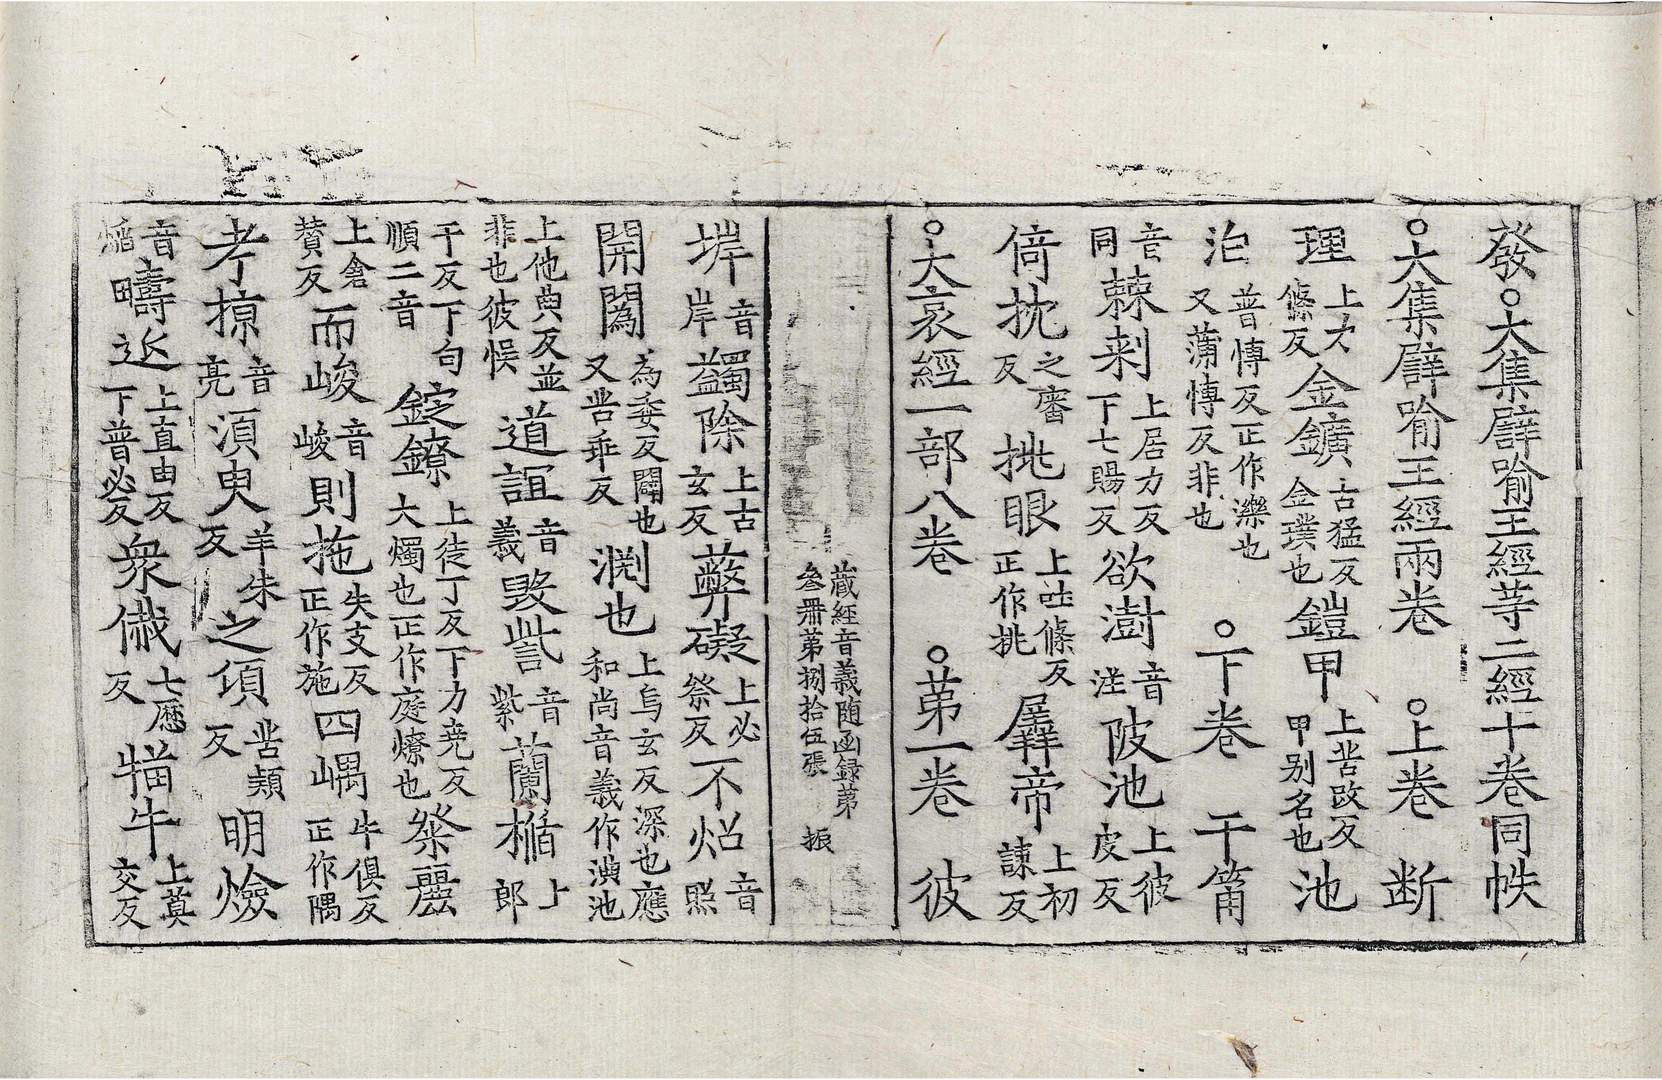 發○大集譬喻王經等二經十卷同帙
○大集譬喻王經兩卷 ○上卷 斷
理上大條反金鑛古猛反金璞也鎧甲上苦改反甲别名也池
泊普愽反正作濼也又蒲愽反非也 ○下卷 干篅
音同棘刺上居力反下七賜反欲澍音注陂池上彼皮反
倚枕之審反挑眼上吐條反正作挑羼帝上初諫反
○大哀經一部八卷 ○第一卷 彼
藏經音義随函録第
叄册第捌拾伍張 振
垾音岸蠲除上古玄反蔽礙上必祭反不炤音照
開闊為委反闢也又苦乖反渊也上烏玄反深也應和尚音義作澒池
上他典反並非也彼悮道誼音義毀訾音紫蘭楯上郎
干反下旬順二音錠鐐上徒丁反下力堯反大燭也正作庭燎也祭䴡
上倉贊反而峻音峻則拖失支反正作施四嵎牛俱反正作隅
考掠音亮湏臾羊朱反之頃苦頴反明燄
音焰疇近上直由反下普必反衆㒻七歷反犌牛上莫交反